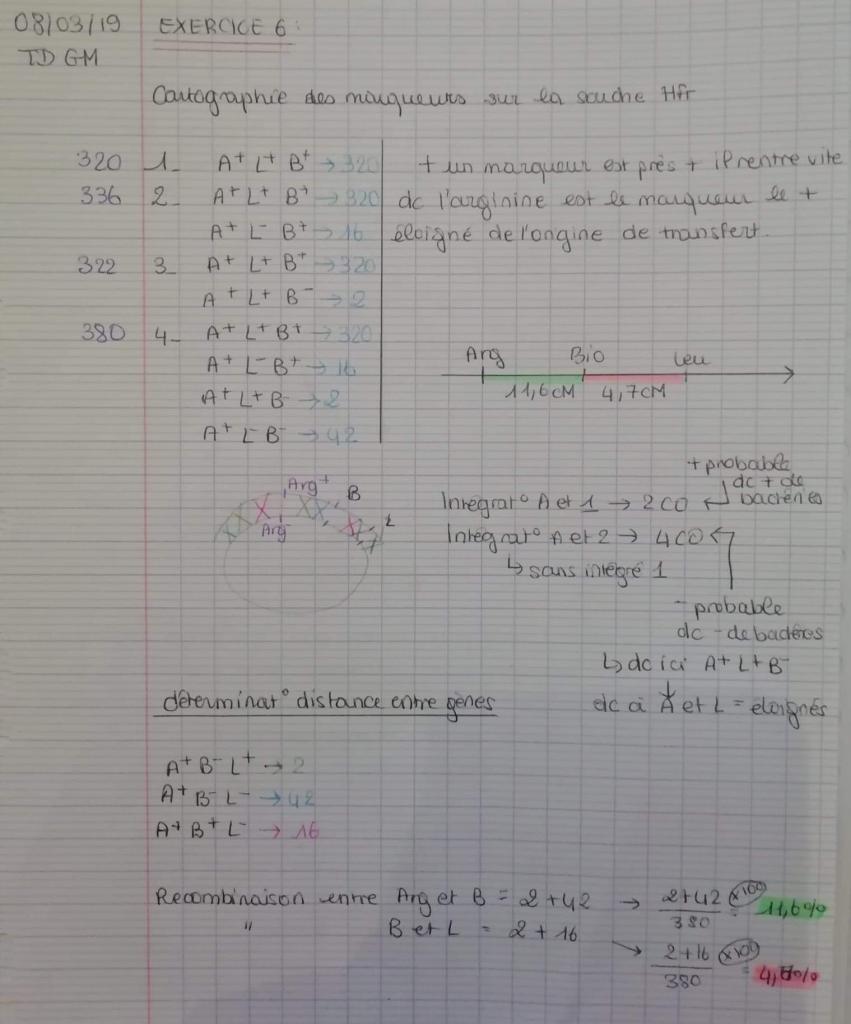 08/03/19 EXERCICE 6 :
TD GM
Cartographie des marqueurs sur la souche Hfr
320 1_ A+ L+ B+ → 320
336 2_ A+ L+ B+ → 320
A+ L- B+ → 16
322 3_ A+ L+ B+ → 320
A+ L+ B- → 2
380 4_ A+ L+ B+ → 320
A+ L- B+ → 16
A+ L+ B- → 2
A+ L- B- → 42
+ un marqueur est près + il rentre vite
dc l'arginine est le marqueur le +
éloigné de l'origine de transfert.
Arg Bio Leu
11,6cM 4,7cM
Arg+ B L
Arg-
+ probable
dc + de
bactéries
Intégrat° A et 1 → 2 CO
Intégrat° A et 2 → 4 CO
↳ sans intégré 1
- probable
dc - de bactéries
↳ dc ici A+ L+ B-
dc à A et L = éloignés
déterminat° distance entre gènes
A+ B- L+ → 2
A+ B- L- → 42
A+ B+ L- → 16
Recombinaison entre Arg et B = 2 + 42 → 2+42/380 ×100 = 11,6%
" B et L = 2 + 16 → 2+16/380 ×100 = 4,7%